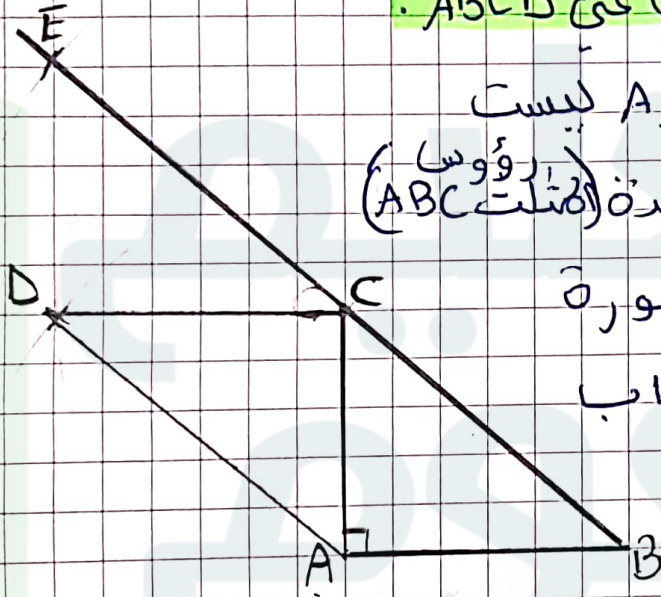 ABCD في
E
A ليست
(رؤوس
المثلث ABC)
D
C
ورة
اب
A
B